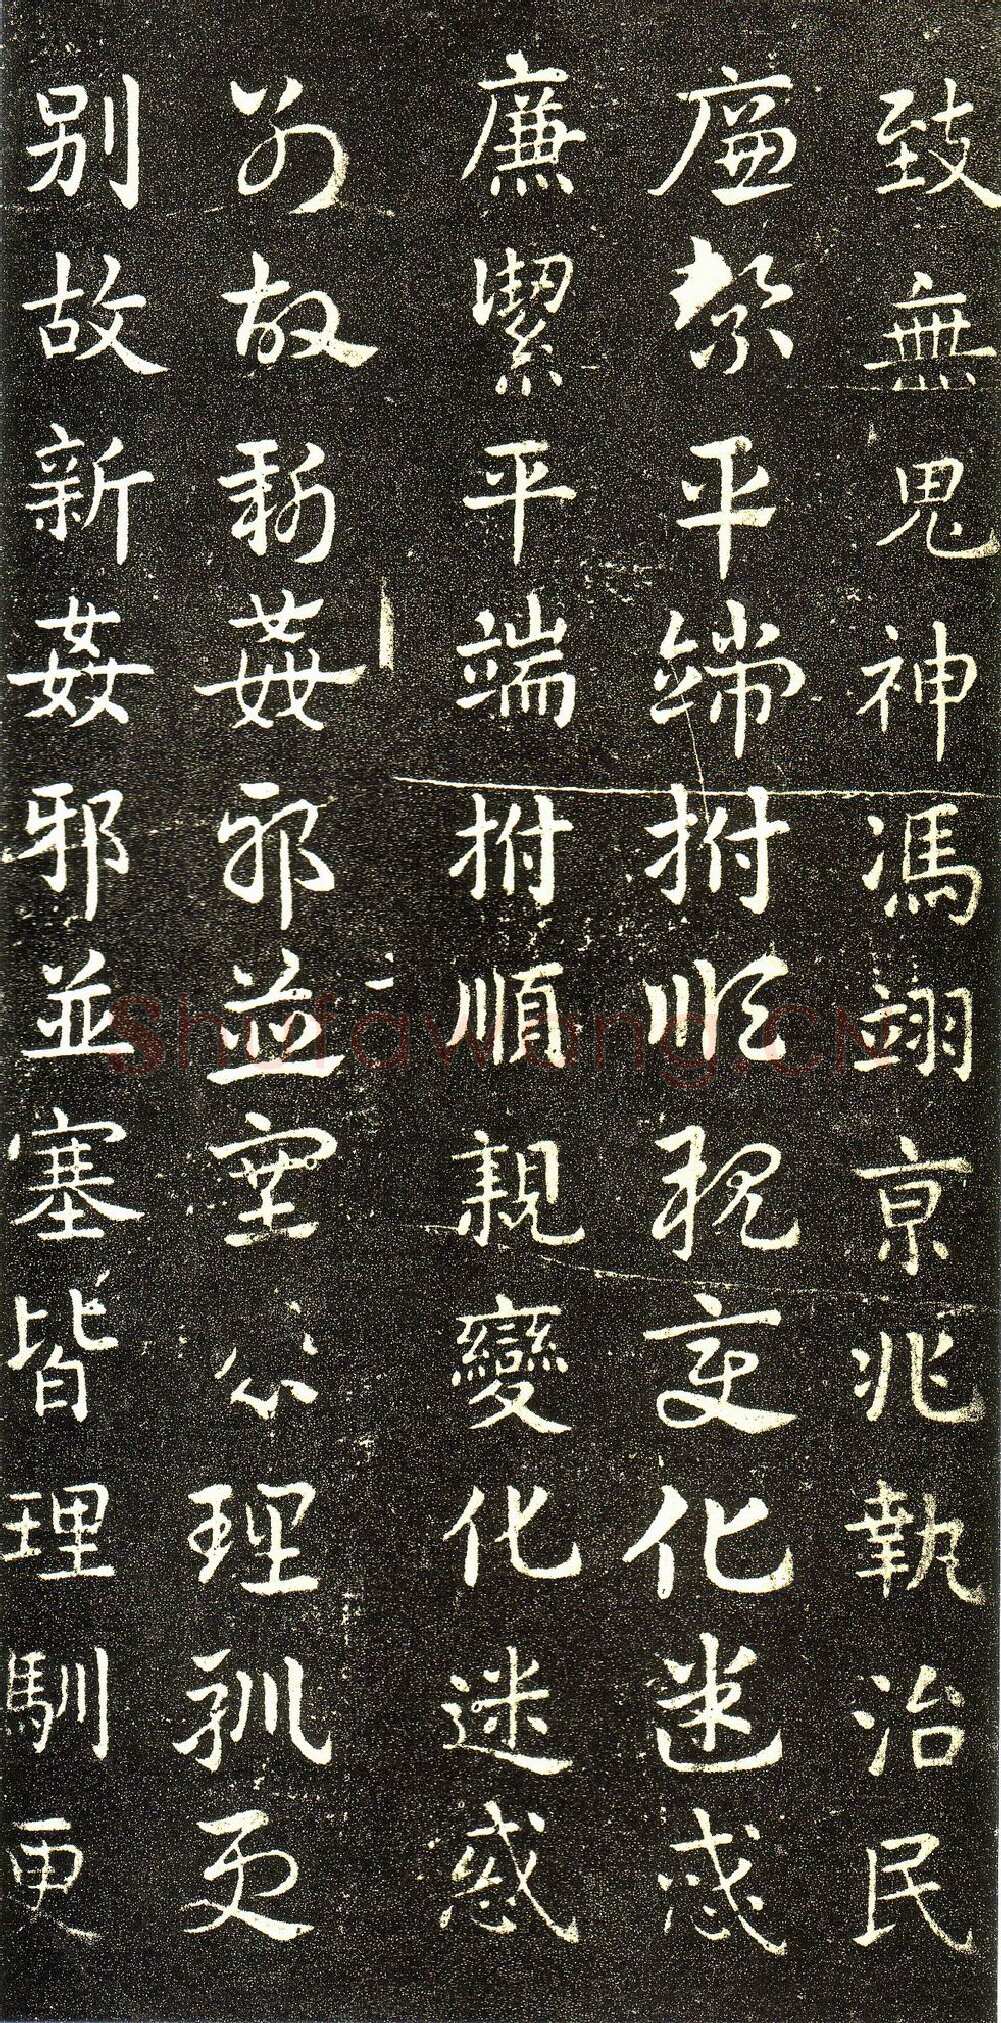 致無鬼神馮翊京兆執治民
廉絜平端拊順親變化迷惑
廉潔平端拊順親變化迷惑
別故新姦邪並塞皆理馴更
別故新姦邪並塞皆理馴更
Shufawang.CN